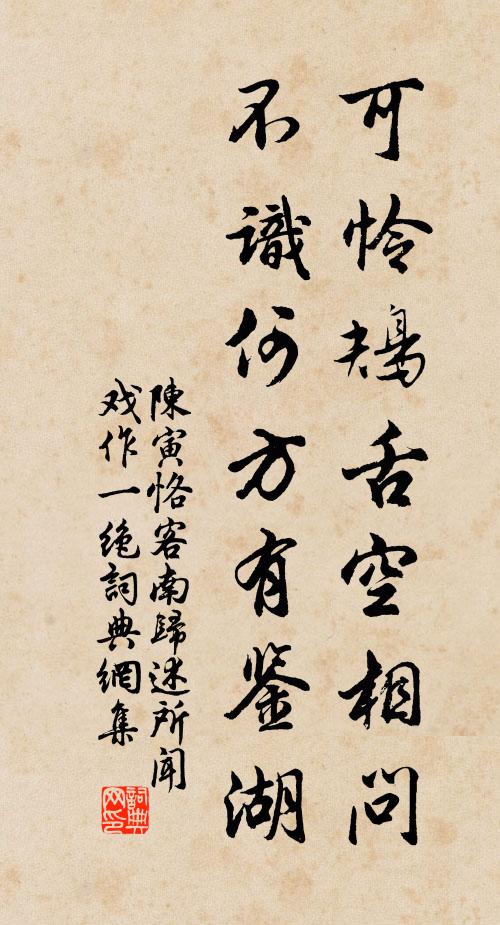 可怜鴂舌空相问
不識何方有鉴湖
陳寅恪客南歸述所闻
戏作一绝詞典網集
詞典
网印